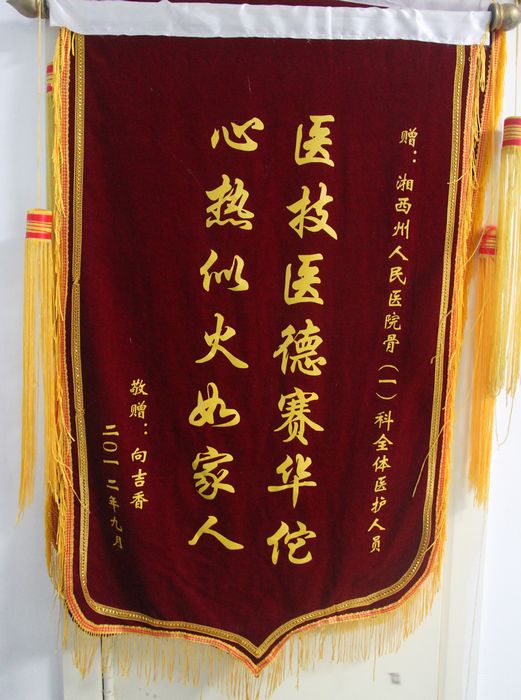 赠：湘西州人民医院骨（一）科全体医护人员
医技医德赛华佗
心热似火如家人
敬赠：向吉香
二〇一二年九月